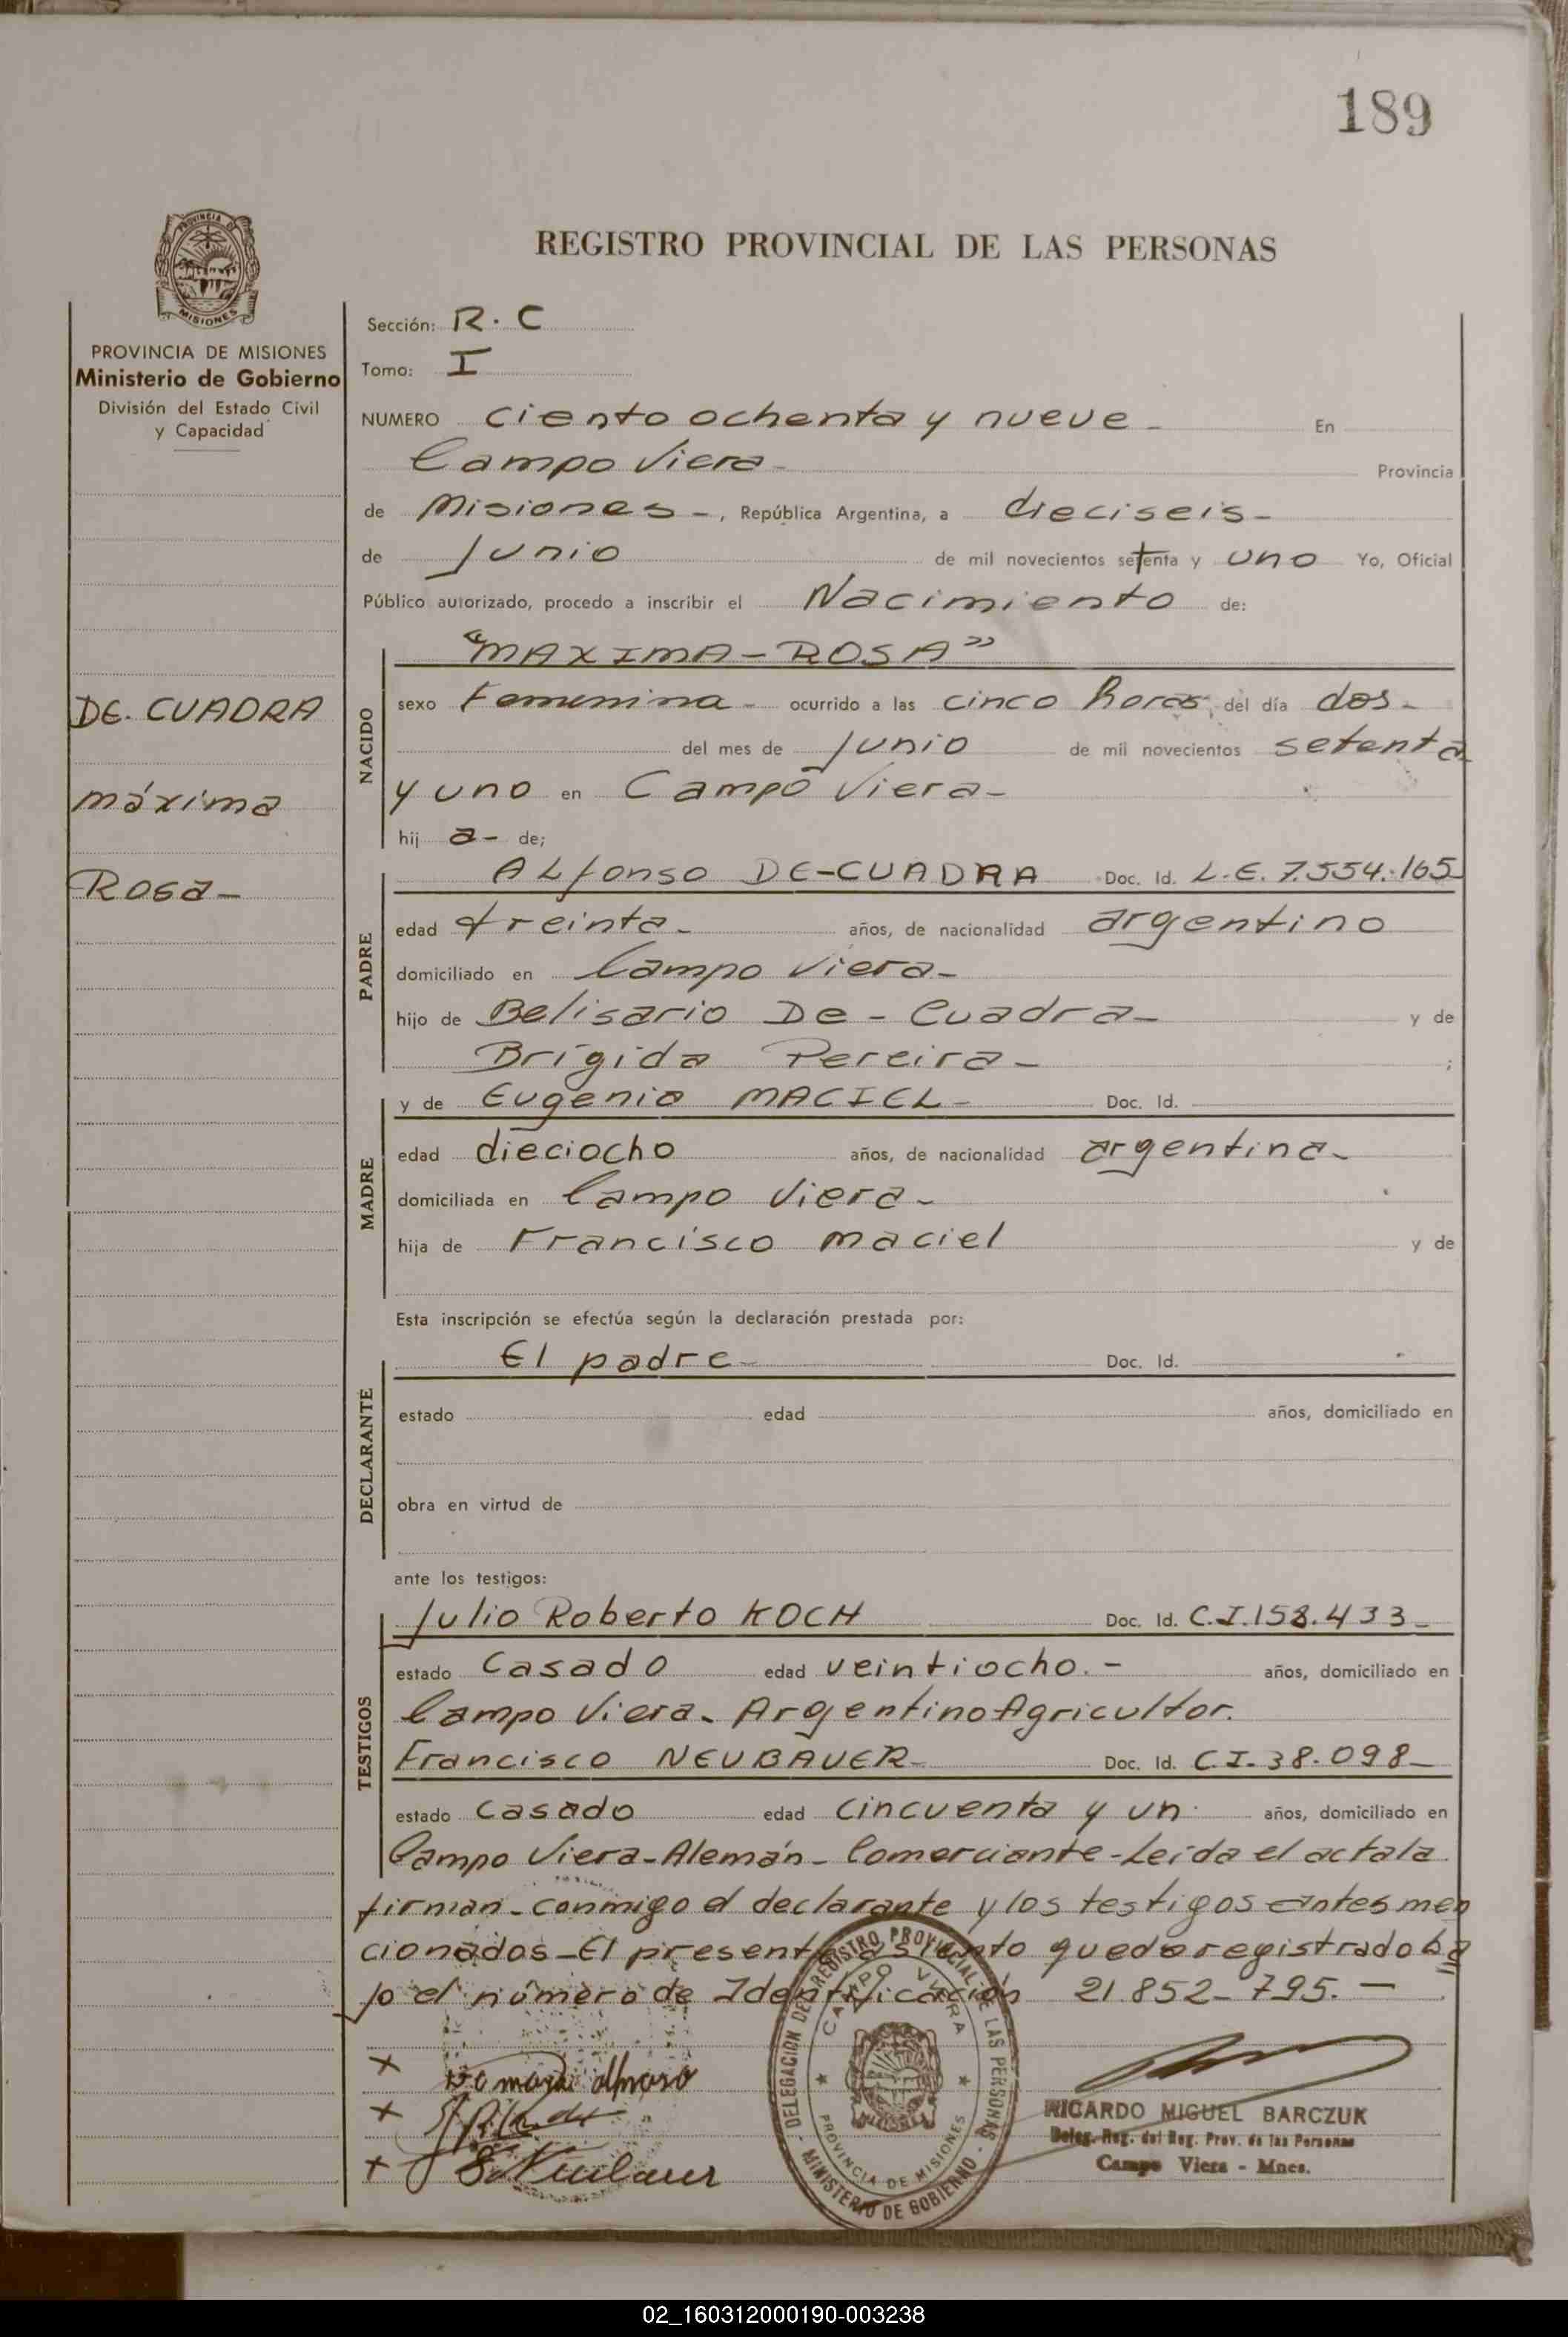 189
PROVINCIA DE
MISIONES
REGISTRO PROVINCIAL DE LAS PERSONAS
PROVINCIA DE MISIONES
Ministerio de Gobierno
División del Estado Civil
y Capacidad
DE. CUADRA
máxima
Rosa-
Sección: R. C
Tomo: I
NUMERO ciento ochenta y nueve - En
Campo Viera- Provincia
de Misiones-, República Argentina, a dieciseis-
de Junio de mil novecientos setenta y uno Yo, Oficial
Público autorizado, procedo a inscribir el Nacimiento de:
NACIDO
"MAXIMA-ROSA"
sexo Femenina- ocurrido a las cinco horas, del día dos-
del mes de Junio de mil novecientos setenta
y uno en Campo Viera-
hij a- de;
PADRE
ALfonso DE-CUADRA Doc. Id. L.E. 7.554.165
edad treinta- años, de nacionalidad argentino
domiciliado en Campo Viera-
hijo de Belisario De-Cuadra- y de
Brígida Pereira- ;
MADRE
y de Eugenia MACIEL- Doc. Id.
edad dieciocho años, de nacionalidad argentina-
domiciliada en Campo Viera-
hija de Francisco maciel y de
Esta inscripción se efectúa según la declaración prestada por:
DECLARANTE
El padre- Doc. Id.
estado edad años, domiciliado en
obra en virtud de
ante los testigos:
TESTIGOS
Julio Roberto KOCH Doc. Id. C.I. 158.433-
estado Casado edad veintiocho.- años, domiciliado en
Campo Viera- Argentino Agricultor.
Francisco NEUBAUER- Doc. Id. C.I-38.098-
estado casado edad cincuenta y un años, domiciliado en
Campo Viera-Alemán-Comerciante-Leída el acta la
firman-conmigo el declarante y los testigos antes men
cionados-El presente asiento queda registrado ba
jo el número de Identificación 21.852-795.-
x alfonso
x
x
DELEGACION DEL REGISTRO PROVINCIAL DE LAS PERSONAS
CAMPO VIERA
PROVINCIA DE MISIONES
MINISTERIO DE GOBIERNO
RICARDO MIGUEL BARCZUK
Deleg. Reg. del Reg. Prov. de las Personas
Campo Viera - Mnes.
02_160312000190-003238